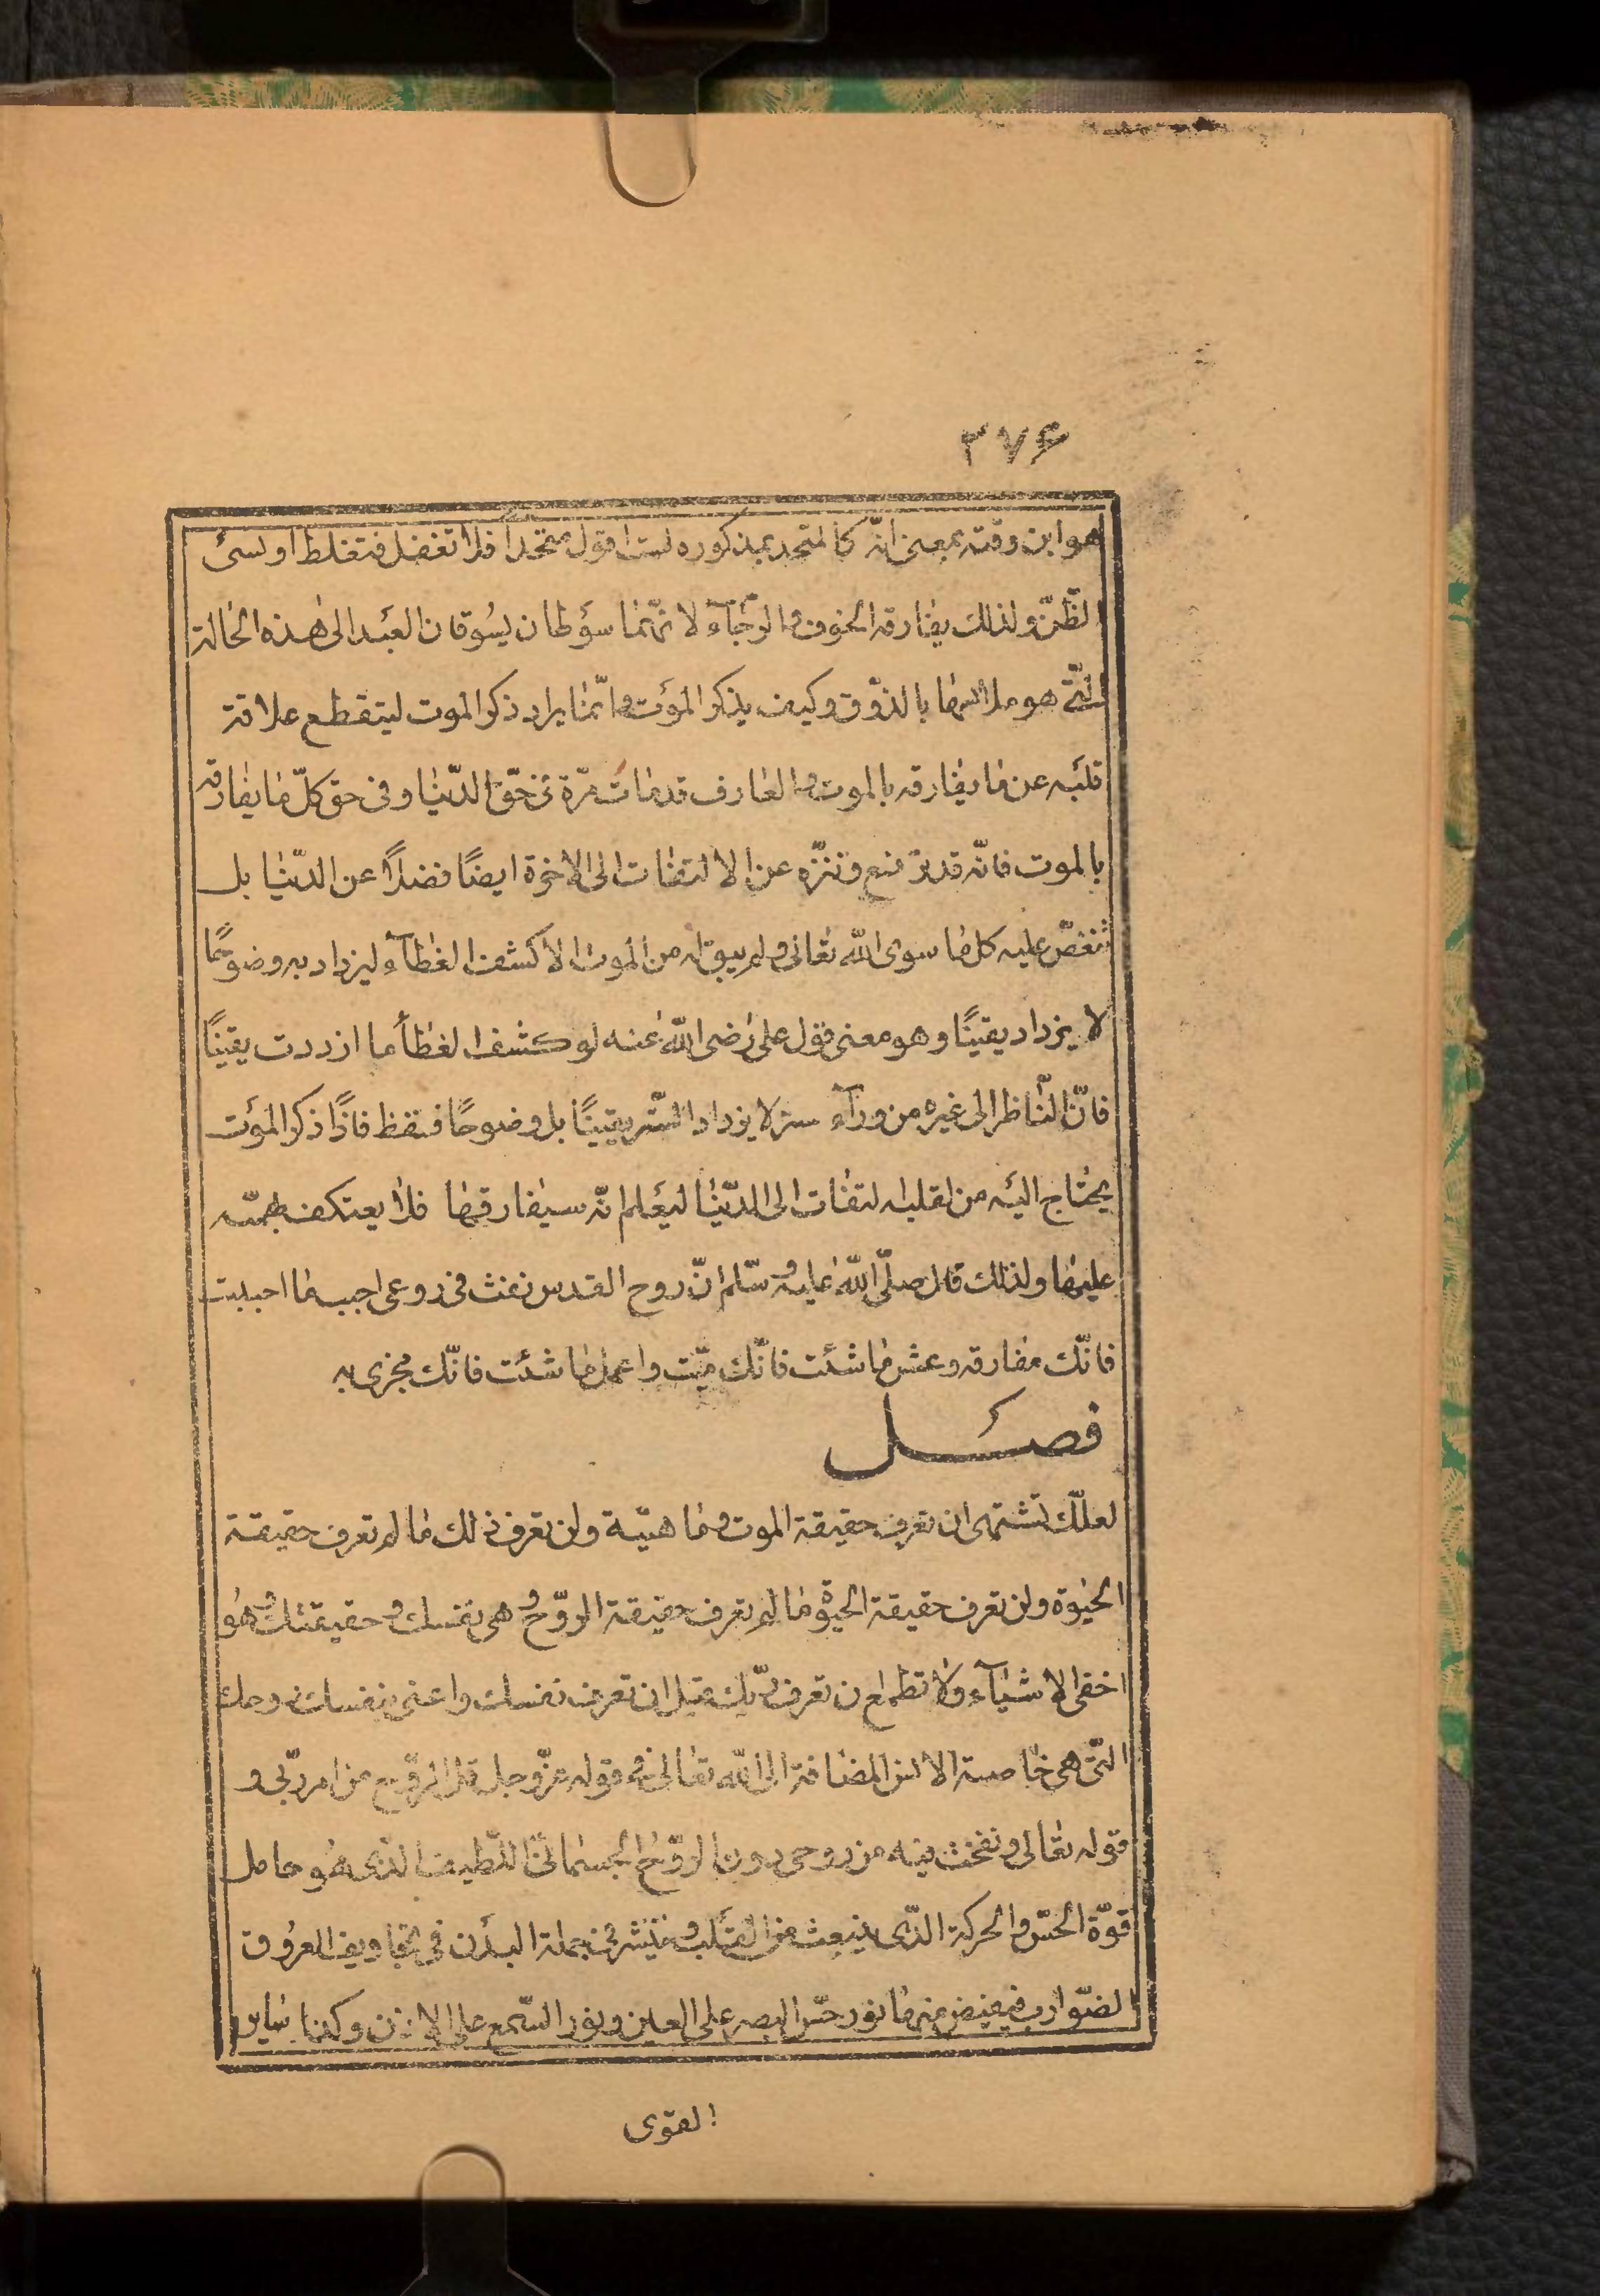 ٢٧۶
هو ابن وقته بمعنی انّه كالمتحد بمذكوره لست اقول متحدا فلا تغفل فتغلط او تسئ
الظّنّ ولذلك يفارقه الخوف والرّجآء لانّهما سوطان يسوقان العبد الی هذه الحالة
الّتی هو ملابسها بالذوق وكيف يذكر الموت وانّما يراد ذكر الموت ليتقطع علاقة
قلبه عن ما يفارقه بالموت والعارف قد مات مرّة فی حقّ الدّنيا وفی حق كلّ ما يفارقه
بالموت فانّه قد ترفع وتنزّه عن الالتفات الی الاخرة ايضًا فضلًا عن الدّنيا بل
تنغصّ عليه كل ما سوی الله تعالی ولم يبق له من الموت الا كشف الغطآء ليزداد به وضوحًا
لا يزداد يقينًا وهو معنی قول علی رضی الله عنه لو كشف الغطأ ما ازددت يقينًا
فانّ النّاظر الی غيره من ورآء ستر لا يزداد السّتر يقينًا بل وضوحًا فقط فاذًا ذكر الموت
يحتاج اليه من لقلبه التفات الی الدّنيا ليعلم انّه سيفارقها فلا يعتكف بهمّته
عليها ولذلك قال صلّی الله عليه وسّلم انّ روح القدس نفث فی روعی احبب ما احببت
فانّك مفارقه وعش ما شئت فانّك ميّت واعمل ما شئت فانّك مجزی به
فصل
لعلّك تشتهی ان تعرف حقيقة الموت وماهيّة ولن تعرف ذلك ما لم تعرف حقيقة
الحيوة ولن تعرف حقيقة الحيوة ما لم تعرف حقيقة الرّوح وهی نفسك وحقيقتك وهو
اخفی الاشيآء ولا تطمع ان تعرف ربّك قبل ان تعرف نفسك واعنی بنفسك روحك
الّتی هی خاصية الانس المضافة الی الله تعالی فی قوله عزّ وجل قل الرّوح من امر ربّی و
قوله تعالی ونفخت فيه من روحی دون الرّوح الجسمانّی اللّطيف الّذی هو حامل
قوّة الحسّ والحركة الّذی ينبعث من القلب وينتشر فی جملة البدن فی تجاويف العروق
الضّوارب فيفيض منها نور حسّ البصر علی العين ونور السّمع علی الاذن وكذا ساير
القوی